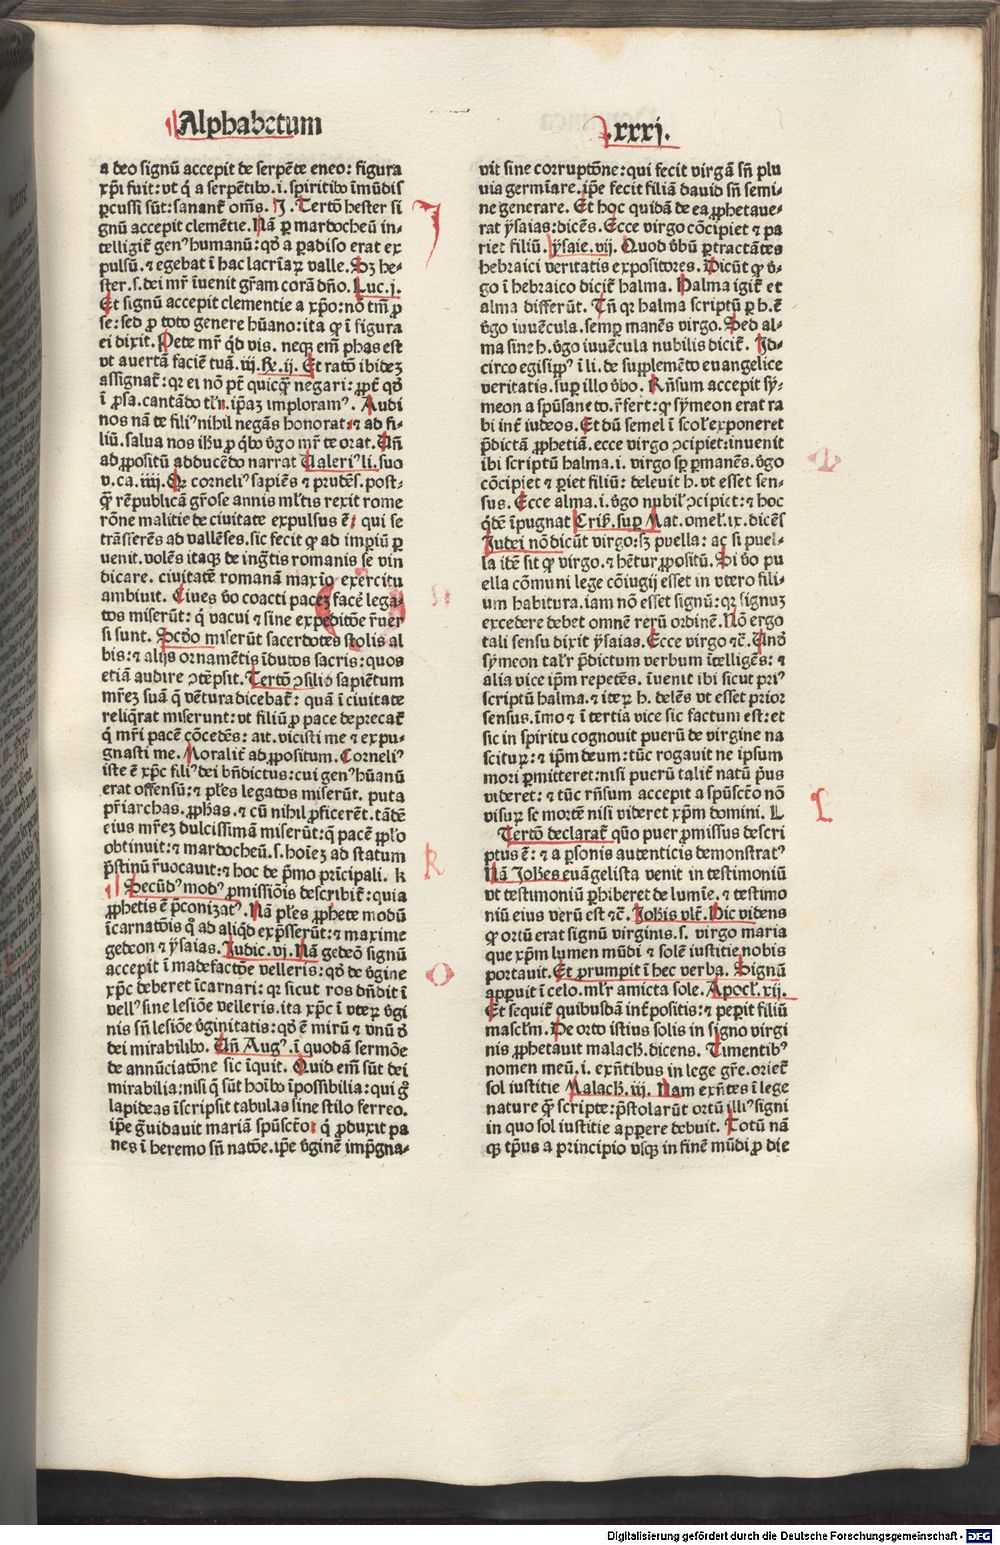 Alphabetum
.xxxj.
a deo signū accepit de serpēte eneo: figura
xp̄i fuit: vt q̇ a serpētibꝰ .i. spiritibꝰ īmūdis
ꝑcussi sūt: sanant᷑ om̄s. J. Tertō hester si
gnū accepit clementie. Nā ꝑ mardocheū in-
telligit᷑ genꝰ humanū: qȯ a ꝑadiso erat ex
pulsū. ⁊ egebat ī hac lacrīaꝝ valle. Sꝫ he-
ster .s. dei mr̄ īuenit gr̄am corā dn̄o. Luc. j.
Et signū accepit clementie a xp̄o: nō tm̄ ꝓ
se: sed ꝓ toto genere hūano: ita ꝙ ī figura
ei dixit. Pete mr̄ qd̄ vis. neqꝫ em̄ phas est
vt auertā faciē tuā. iij. Re. ij. Et ratō ibidēꝫ
assignat᷑: qꝛ ei nō pt̄ quicq̄ꝫ negari: ꝓpt᷑ qȯ
ī ꝓsa. cantādo tlʼn. ip̄aꝫ imploramꝰ. Audi
nos nā te filiꝰ nihil negās honorat. ⁊ ad fi-
liū. salua nos ih̄u ꝓ qb̄ꝰ v̇go mr̄ te orat. Un̄
ad ꝓpositū adducēdo narrat Ualeriꝰ li. suo
v. ca. iiij. Qꝛ corneliꝰ sapiēs ⁊ prudēs. post-
q̄ꝫ rēpublicā gr̄ose annis ml̄tis rexit rome
rōne malitie de civitate expulsus ē: qui se
trāsferēs ad vallēses. sic fecit ꝙ ad imꝑiū ꝑ
uenit. volēs itaqꝫ de ingr̄tis romanis se vin
dicare. civitatē romanā maxīo exercitu
ambiuit. Ciues v̇o coacti paceꝫ facē lega-
tos miserūt: q̇ vacui ⁊ sine expeditōe r̄uer
si sunt. Scd̄o miserūt sacerdotes stolis al
bis: ⁊ alijs ornamētis īdutos sacris: quos
etiā audire ꝯtēpsit. Tertō ꝯsilio sapiētum
mr̄eꝫ suā q̄ vētura dicebat᷑: quā ī ciuitate
reliq̄rat miserunt: vt filiū ꝓ pace deprecat᷑
q̇ mr̄i pacē cōcedēs: ait. vicisti me ⁊ expu-
gnasti me. Moralit᷑ ad ꝓpositum. Corneliꝰ
iste ē xp̄c filiꝰ dei bn̄dictus: cui genꝰ hūanū
erat offensū: ⁊ ples legatos miserūt. puta
pr̄iarchas. ꝓphas. ⁊ cū nihil ꝓficerēt. tādē
eius mr̄eꝫ dulcissimā miserūt: q̄ pacē ꝓpl̄o
obtinuit: ⁊ mardocheū .s. hoīeꝫ ad statum
p̄stinū r̄uocauit: ⁊ hoc de p̄mo prīcipali. K
Secūdꝰ modꝰ ꝑmissiōis describit᷑: quia
ꝓphetis ē p̄conizatꝰ. Nā ples ꝓphete modū
īcarnatōis qͥ ad aliqd̄ exp̄sserūt: ⁊ maxime
gedeon ⁊ ysaias. Judic. vj. Nā gedeō signū
accepit ī madefactōe velleris: qȯ de v̇gine
xp̄c deberet īcarnari: qꝛ sicut ros dn̄dit ī
vellꝰ sine lesiōe velleris. ita xp̄c ī vteꝝ v̇gi
nis sn̄ lesiōe v̇ginitatis: qȯ ē mirū ⁊ vnū ď
dei mirabilibꝰ. Un̄ Augꝰ. ī quodā sermōe
de annūciatōne sic īquit. Quid em̄ sūt dei
mirabilia: nisi q̄ sūt hoībꝰ īpossibilia: qui g̊
lapideas īscripsit tabulas sine stilo ferreo.
ip̄e ḡuidauit mariā sp̄uscto: q̇ ꝓduxit pa
nes ī heremo sn̄ natōe. ip̄e v̇ginē imp̄gna-
J
K
uit sine corruptōne: qui fecit virgā sn̄ plu
uia germīare. ip̄e fecit filiā dauid sn̄ semi-
ne generare. Et hoc quidā de ea ꝓphetaue-
rat ysaias: dicēs. Ecce virgo cōcipiet ⁊ pa
riet filiū. ysaie. vij. Quod v̇bū ꝑtractātes
hebraici veritatis expositores. Dicūt ꝙ v̇-
go ī hebraico dicit᷑ halma. Halma igit᷑ et
alma differūt. Tn̄ qꝛ halma scriptū ꝑ h. ē
v̇go iuuēcula. semꝑ manēs virgo. Sed al-
ma sine h. v̇go iuuēcula nubilis dicit᷑. Id-
circo egisippꝰ ī li. de supplemēto euangelice
veritatis. suꝑ illo v̇bo. Rn̄sum accepit sy-
meon a spūsancto. r̄fert: ꝙ symeon erat ra
bi int᷑ iudeos. Et dū semel ī scol᷑ exponeret
p̄dictā ꝓphetiā. ecce virgo ꝯcipiet: inuenit
ibi scriptū halma .i. virgo sp̄ ꝑmanēs. v̇go
cōcipiet ⁊ ꝑiet filiū: deleuit h. vt esset sen-
sus. Ecce alma .i. v̇go nubil᷑ ꝯcipiet: ⁊ hoc
qd̄ē īpugnat Crisͦ. suꝑ Mat. omel᷑. ix. dicēs
Judei nō dicūt virgo: sꝫ puella: ac si puel-
la itē sit ꝙ virgo. ⁊ hēt᷑ ꝓpositū. Si v̇o pu
ella cōmuni lege cōiugij esset in vtero fili-
um habitura. iam nō esset signū: qꝛ signuꝫ
excedere debet omnē rerū ordinē. Nō ergo
tali sensu dixit ysaias. Ecce virgo ⁊c̄. Unȯ
symeon tal᷑r p̄dictum verbum ītelligēs: ⁊
alia vice ip̄m repetēs. īuenit ibi sicut priꝰ
scriptū halma. ⁊ iteꝝ h. delēs vt esset prior
sensus. īmo ⁊ ī tertia vice sic factum est: et
sic in spiritu cognouit puerū de virgine na
sciturꝝ: ⁊ ip̄m deum: tūc rogauit ne ipsum
mori ꝑmitteret: nisi puerū talit᷑ natū pͥus
videret: ⁊ tūc rn̄sum accepit a spūscto nō
visuꝝ se mortē nisi videret xp̄m domini. L
Tertō declarat᷑ qūo puer ꝓmissus descri
ptus ē: ⁊ a ꝑsonis autenticis demonstratꝰ
Nā Joh̄es euāgelista venit in testimoniū
vt testimoniū ꝑhiberet de lumīe. ⁊ testimo
niū eius verū est ⁊c̄. Joh̄is vlt᷑. Hic videns
ꝙ ortū erat signū virginis .s. virgo maria
que xp̄m lumen mūdi ⁊ solē iustitie nobis
portauit. Et prumpit ī hec verba. Signū
apꝑuit ī celo. ml᷑r amicta sole. Apocl᷑. xij.
Et sequit᷑ quibusdā int᷑positis: ⁊ peꝑit filiū
mascl᷑m. De orto istius solis in signo virgi
nis ꝓphetauit malach. dicens. Timentibꝰ
nomen meū .i. exn̄tibus in lege gr̄e. oriet᷑
sol iustitie Malach. iij. Nam exn̄tes ī lege
nature q̄ꝫ scripte: p̄stolarūt ortū illiꝰ signi
in quo sol iustitie apꝑere debuit. Totū nā
qꝫ tp̄us a principio vsqꝫ in finē mūdi ꝓ die
L